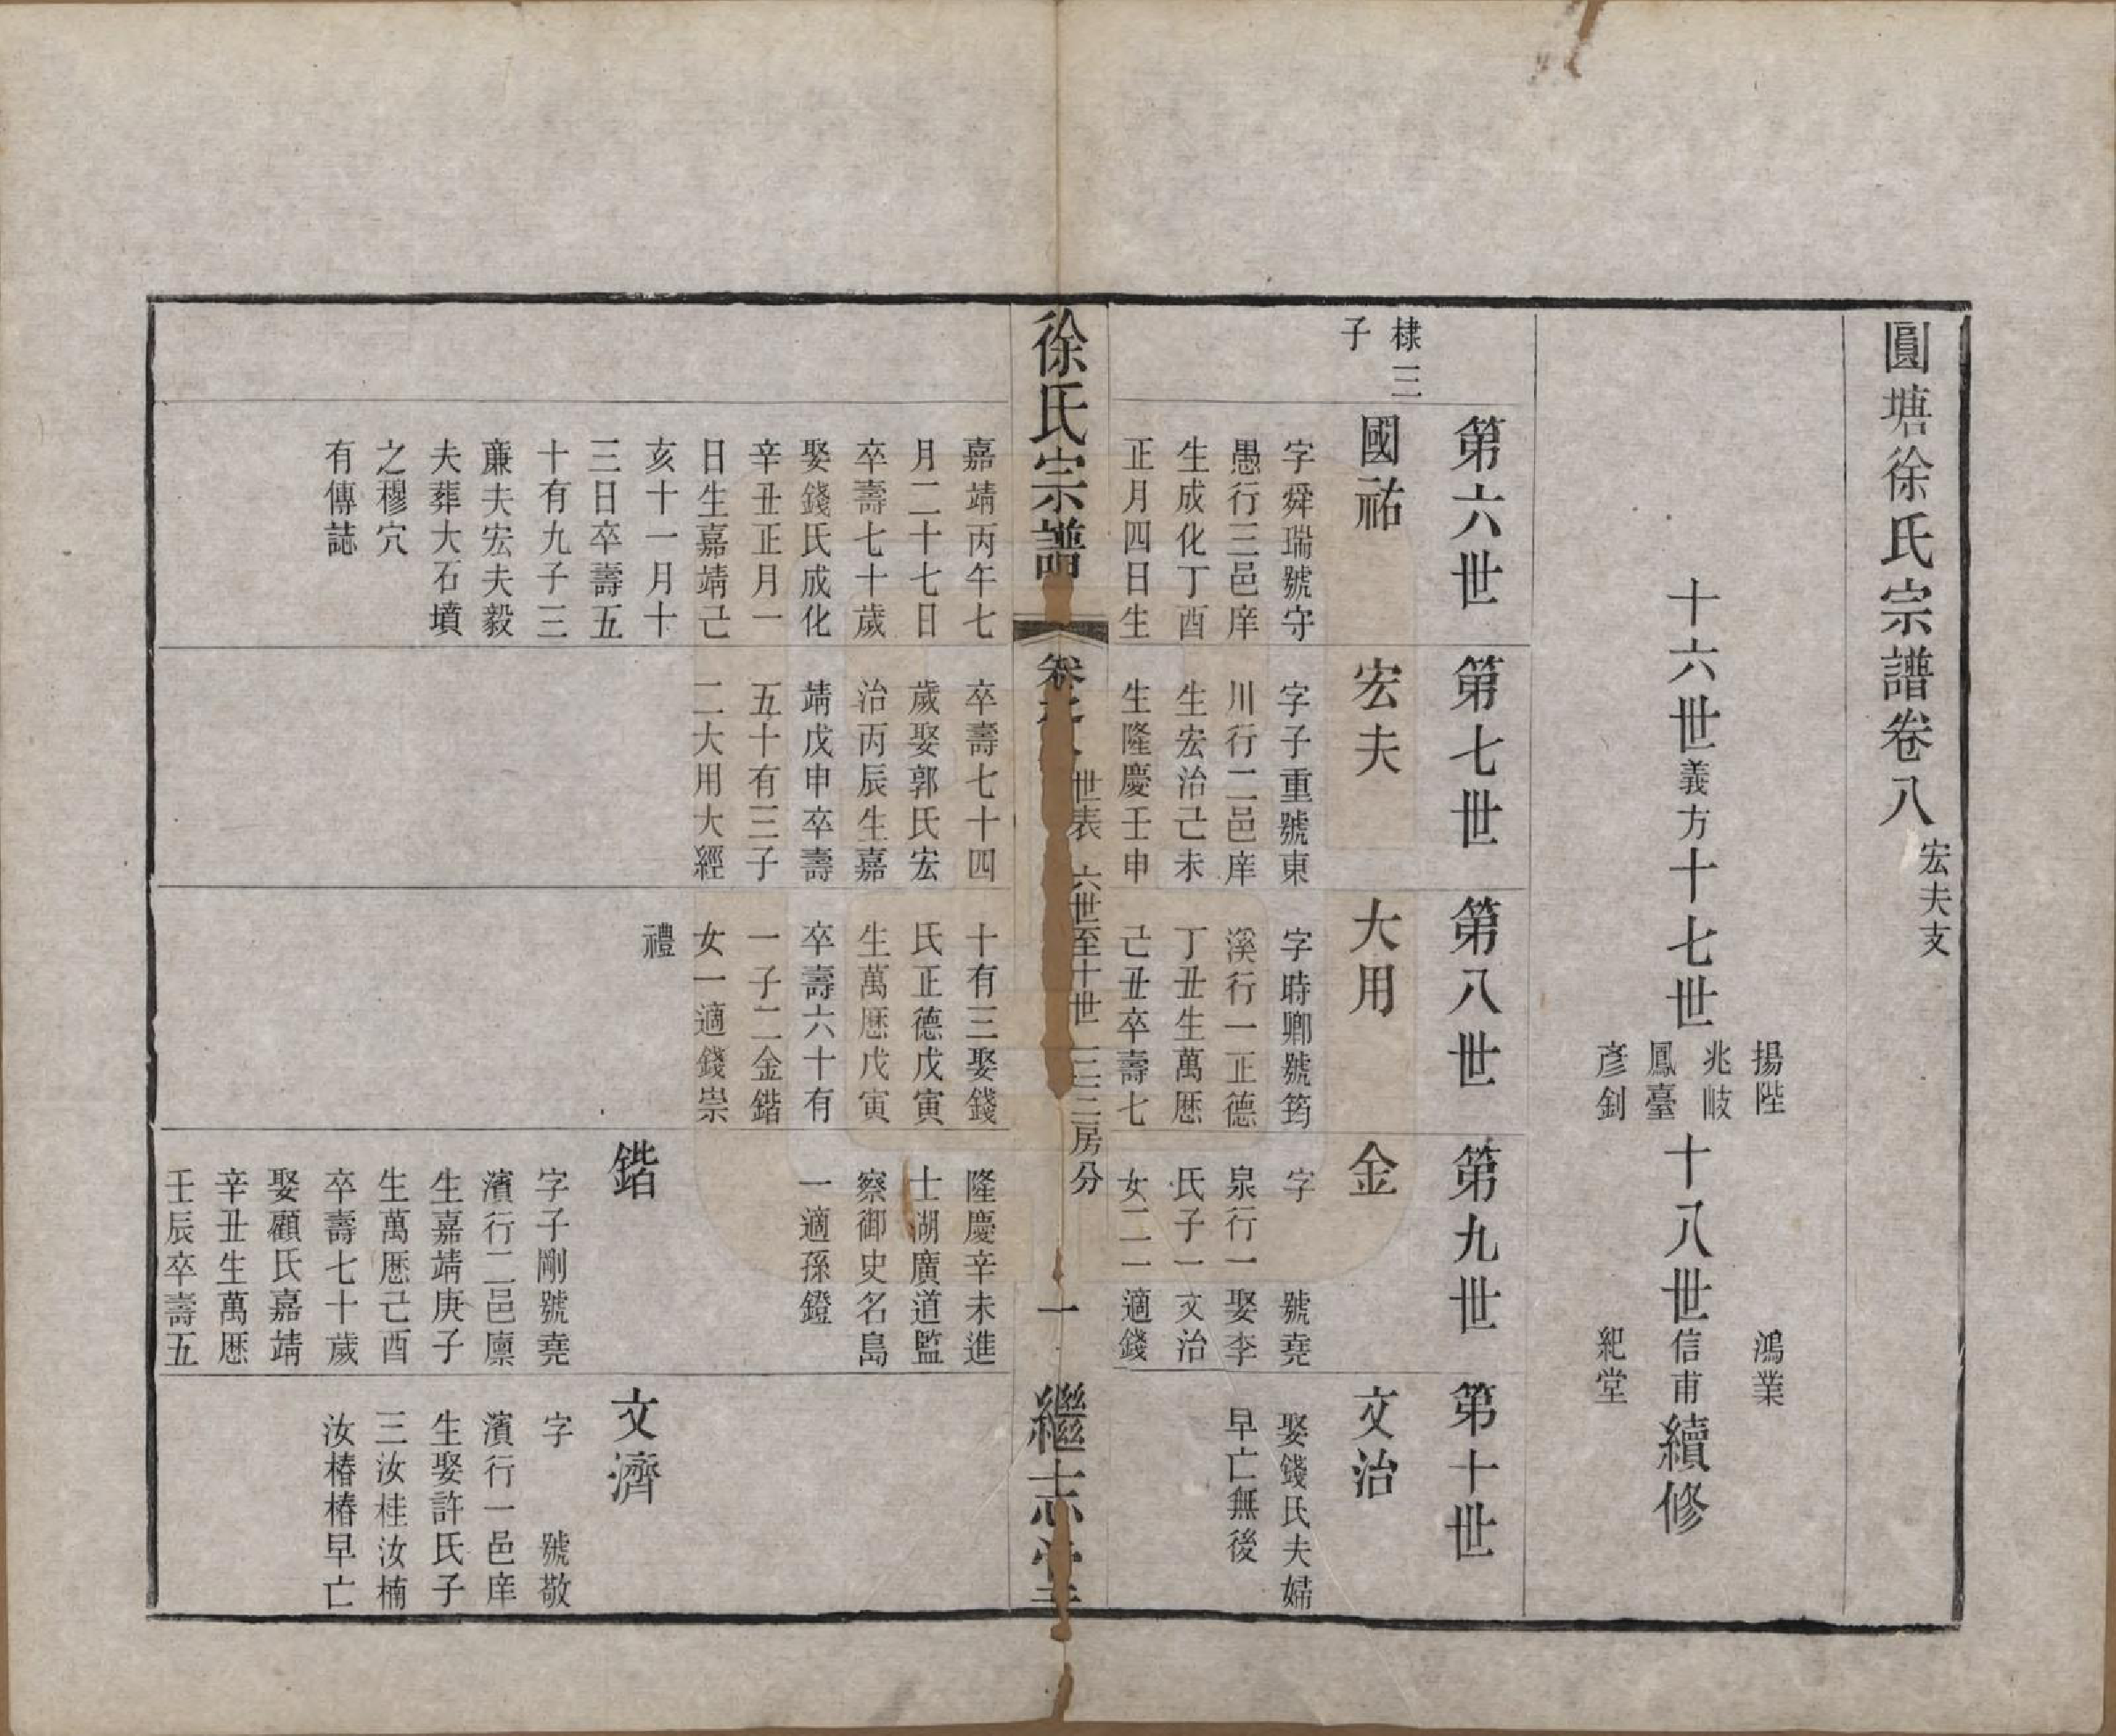 圓塘徐氏宗譜卷八 宏夫支
十六世義方十七世
揚陛
兆岐
鳳臺
彥釗
十八世
鴻業
信甫
紀堂
續修
棣三
子
第六世
國祐
字舜瑞號守
愚行三邑庠
生成化丁酉
正月四日生
嘉靖丙午七
月二十七日
卒壽七十歲
娶錢氏成化
辛丑正月一
日生嘉靖己
亥十一月十
三日卒壽五
十有九子三
亷夫宏夫毅
夫葬大石墳
之穆穴
有傳誌
第七世
宏夫
字子重號東
川行二邑庠
生宏治己未
生隆慶壬申
卒壽七十四
歲娶郭氏宏
治丙辰生嘉
靖戊申卒壽
五十有三子
二大用大經
第八世
大用
字時卿號筠
溪行一正德
丁丑生萬厯
己丑卒壽七
十有三娶錢
氏正德戊寅
生萬厯戊寅
卒壽六十有
一子二金鍇
女一適錢崇
禮
第九世
金
字 號堯
泉行一娶李
氏子一文治
女二一適錢
隆慶辛未進
士湖廣道監
察御史名島
一適孫鐙
鍇
字子剛號堯
濱行二邑廪
生嘉靖庚子
生萬厯己酉
卒壽七十歲
娶顧氏嘉靖
辛丑生萬厯
壬辰卒壽五
第十世
文治
娶錢氏夫婦
早亡無後
文濟
字 號敬
濱行一邑庠
生娶許氏子
三汝桂汝楠
汝椿椿早亡
徐氏宗譜
卷之
世表 六世至十世 三三房分
一
繼志堂